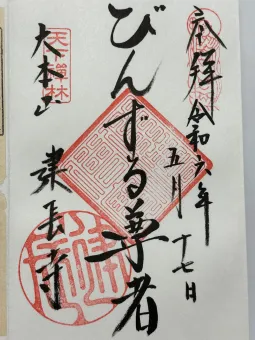 奉拝
令和六年
五月十七日
びんずる尊者
天下禅林
大本山
建長寺